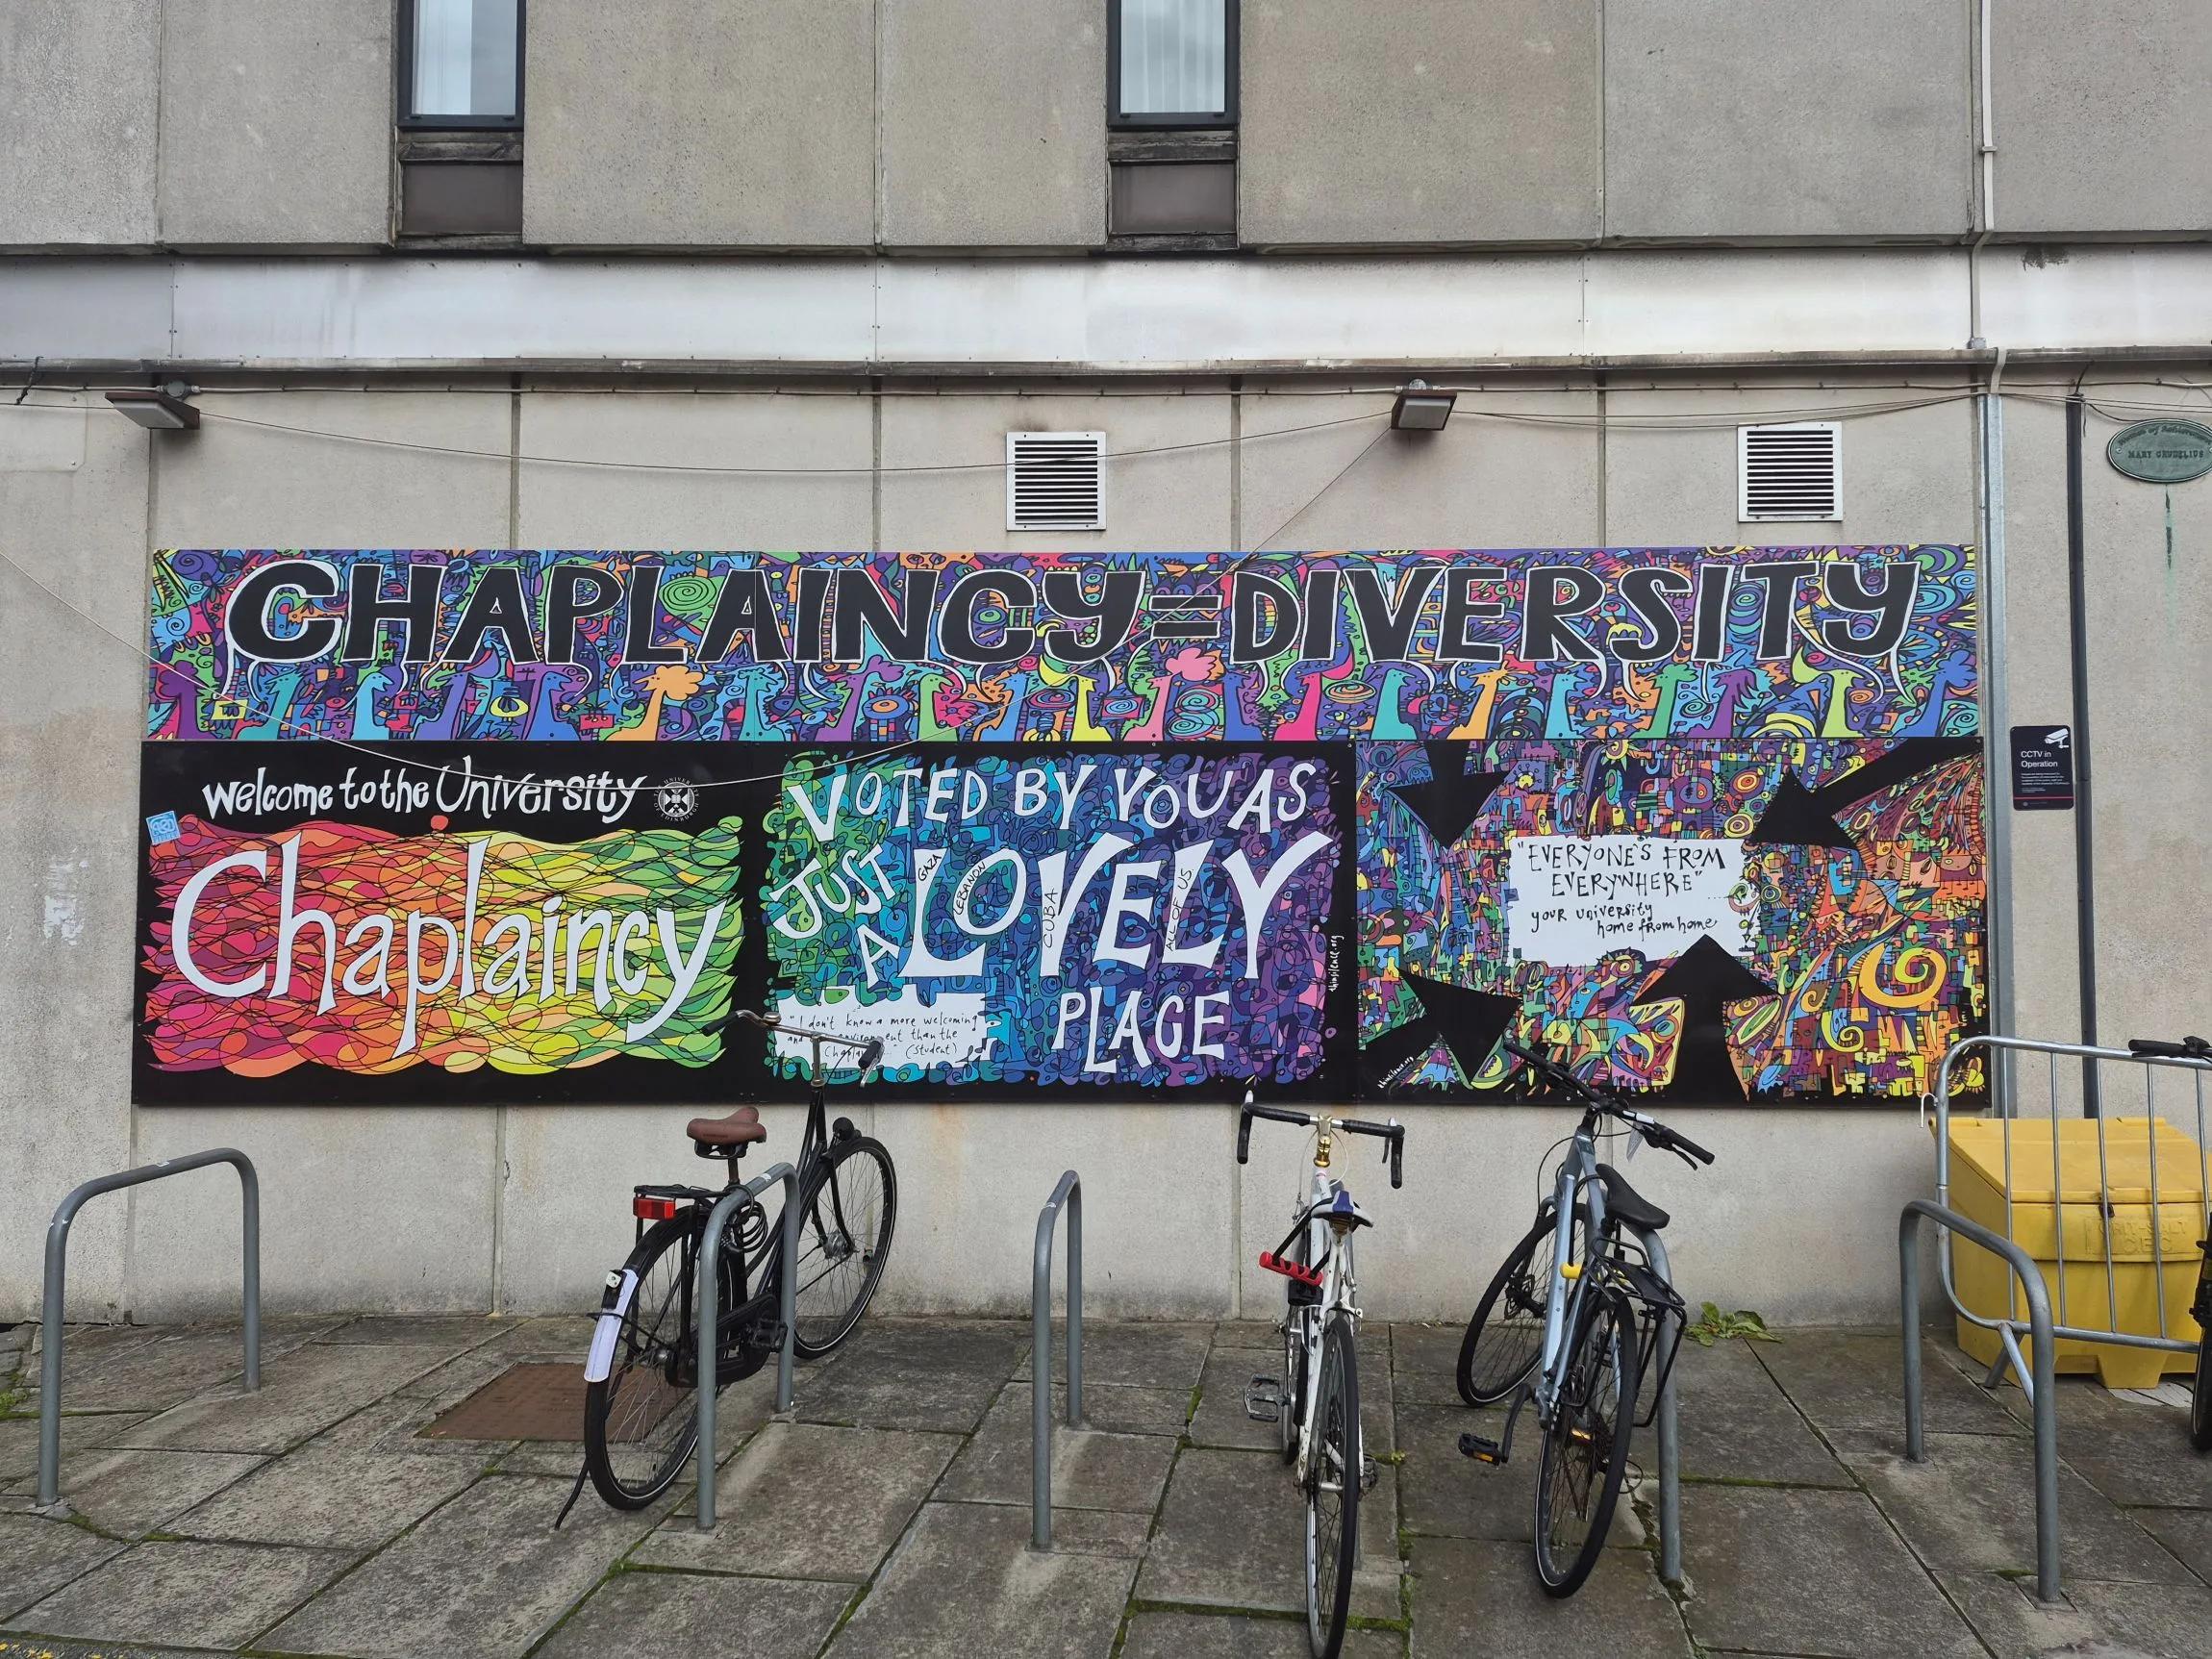 MARY CRUDELIUS
CHAPLAINCY=DIVERSITY
Welcome to the University
Chaplaincy
VOTED BY YOU AS
JUST
A
LOVELY
GAZA
LEBANON
CUBA
ALL OF US
PLACE
"I don't know a more welcoming
and environment than the
(student)
thinsilence.org
"EVERYONE'S FROM
EVERYWHERE"
your university
home from home
thinsilence.org
CCTV in
Operation
GRIT-SALT